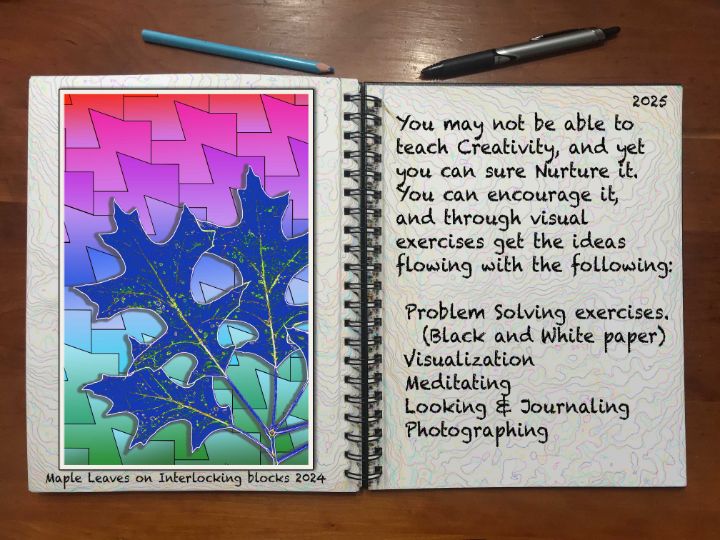 Maple Leaves on Interlocking blocks 2024
2025
You may not be able to
teach Creativity, and yet
you can sure Nurture it.
You can encourage it,
and through visual
exercises get the ideas
flowing with the following:
Problem Solving exercises.
(Black and White paper)
Visualization
Meditating
Looking & Journaling
Photographing